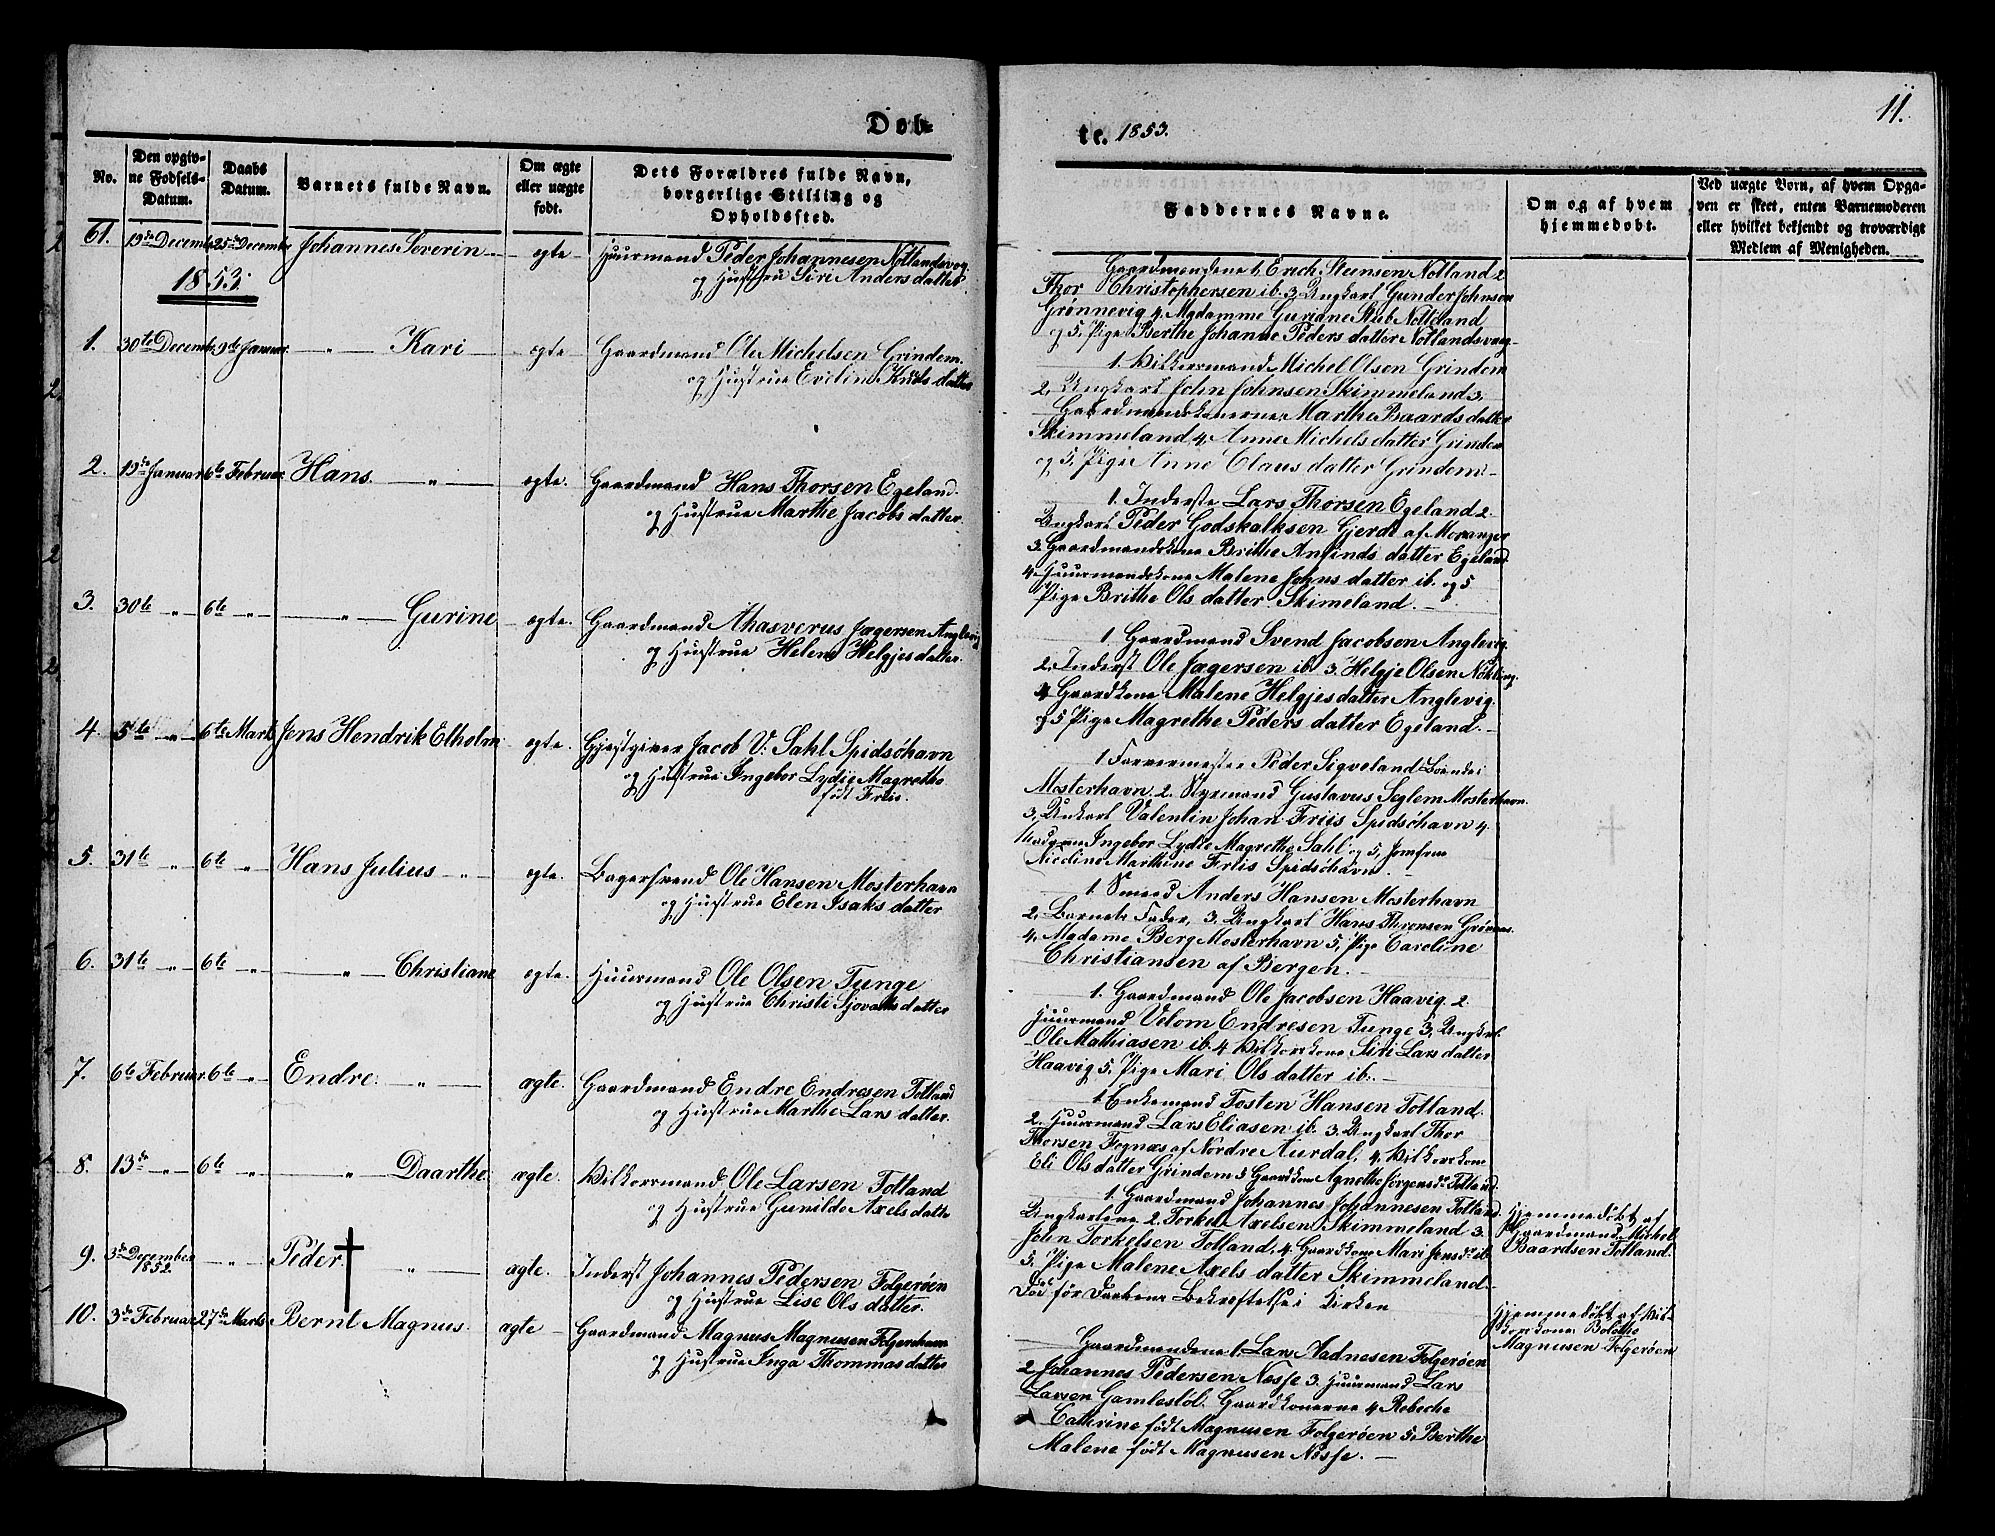 Døb-
No.
Den opgiv-
ne Fødsels-
Datum.
Daabs
Datum.
Barnets fulde Navn.
Om ægte
eller uægte
født.
Dets Forældres fulde Navn,
borgerlige Stilling og
Opholdssted.
61. 19de Decembr 25de Decembr Johannes Severin ægte Huurmand Peder Johannesen Notlandsvog
og Hustrue Siri Anders datter
1853
1. 30te Decemb 9de Januar - " - Kari ægte Gaardmand Ole Michelsen Grindem
og Hustrue Eveline Knuds datter
2. 19de Januar 6te Februar Hans - " - ægte. Gaardmand Hans Thorsen Egeland.
og Hustrue Marthe Jacobs datter.
3. 30te - " - 6te - " - - " - Gurine ægte. Gaardmand Ahasverus Jægersen Anglevig
og Hustrue Helene Helgjes datter.
4. 5te - " - 6te Marts Jens Hendrik Elholm ægte. Gjestgiver Jacob V. Sahl Spidsøhavn
og Hustrue Ingebor Lydie Magrethe
født Friis.
5. 31te " 6te - " - Hans Julius - " - ægte. Bagersvend Ole Hansen Mosterhavn
og Hustrue Elen Isaks datter
6. 31te - " - 6te - " - - " - Christiane ægte. Huurmand Ole Olsen Tunge
og Hustrue Christi Sjovats datter
7. 6te Februar 6te - " - Endre. - " - ægte. Gaardmand Endre Endresen Totland
og Hustrue Marthe Lars datter.
8. 13de - " - 6te " - " - Daarthe ægte. Vilkorsmand Ole Larsen Totland
og Hustrue Gunilde Axels datter
9. 3de December
1852. - " - Peder. - " - ægte. Inderst Johannes Pedersen Folgerøen
og Hustrue Lise Ols datter.
10. 3de Februar 27de Marts Bernt Magnus. ægte - Gaardmand Magnus Magnusen Folgerøhavn
og Hustrue Inga Thommas datter
te. 1853.
11.
Faddernes Navne.
Om og af hvem
hjemmedøbt.
Ved uægte Børn, af hvem Opga-
ven er skeet, enten Barnemoderen
eller hvilket bekjendt og troværdigt
Medlem af Menigheden.
Gaardmændene 1, Erich Steensen Notland 2
Thor Christophersen ib. 3. Ungkarl Gunder Johnsen
Grønnevig 4. Mgdamme Guriane Stub Notteland
og 5, Pige Berthe Johanne Peders datter Notlandsvaag
1. Vilkorsmand Michel Olsen Grindem
2. Ungkarl John Johnsen Skimmeland 3.
Gaardmandskonerne Marthe Baards datter
Skimmeland 4, Anne Michels datter Grindem
og 5, Pige Anne Claus datter Grindem -
1. Inderste Lars Thorsen Egeland 2.
Ungkarl Peder Godskalksen Gjerdt af Moranger
3. Gaardmandskone Brithe Anfinds datter Egeland
4. Huurmandskone Malene Johns datter ib. og 5
Pige Brithe Ols datter. Skimeland. -
1. Gaardmand Svend Jacobsen Anglevig.
2. Inderst Ole Jægersen ib. 3. Helgje Olsen
4 Gaardkone Malene Helgjes datter Anglevig.
og 5 Pige Magrethe Peders datter Egeland. -
1 Farvermester Peder Sigveland Boende i
Mosterhavn. 2. Styrmand Gustavus Seglem Mosterhavn.
3, Unkarl Valentin Johan Friis Spidsøhavn 4.
Madam Ingebor Lydie Magrethe Sahl og 5, Jomfrue
Nicoline Marthine Friis Spidsøhavn.
1. Smed Anders Hansen Mosterhavn
2. Barnets Fader, 3. Ungkarl Hans Thronsen
4, Madame Berg Mosterhavn 5, Pige Caroline
Christiansen af Bergen. -
1. Gaardmand Ole Jacobsen Haavig. 2.
Huurmand Velom Endresen Tunge 3, Ungkarl
Ole Mathiasen ib. 4 Vilkorskone Siri Lars datter
Haavig 5, Pige Mari Ols datter ib. -
1. Enkemand Tosten Hansen Totland.
2. Huurmand Lars Eliasen ib. 3. Ungkarl Thor
Thorsen Fognæs af Nordre Aurdal. 4, Vilkorskone
Eli Ols datter Grindem 5 Gaardkone Agnethe Jørgens dr Totland.
1. Gaardmand Johannes Johannesen Totland.
Ungkarlene 2. Torkel Axelsen Skimmeland 3.
John Torkelsen Totland, 4 Gaardkone Mari Jens dr ib.
5, Pige Malene Axels datter Skimmeland -
Hjemmedøbt af
Gaardmand Michel
Baardsen Totland.
Død før Daabens Bekræftelse i Kirken
Hjemmedøbt af Vil-
korskone Bolethe
Magnusen Folgerøen
Gaardmændene 1. Lars Aadnesen Folgerøen
2 Johannes Pedersen Nøsse 3. Huurmand Lars
Larsen Gamlestøl. Gaardkonerne 4 Rebeche
Cathrine født Magnusen Folgerøen 5, Berthe
Malene født Magnusen Nøsse. -